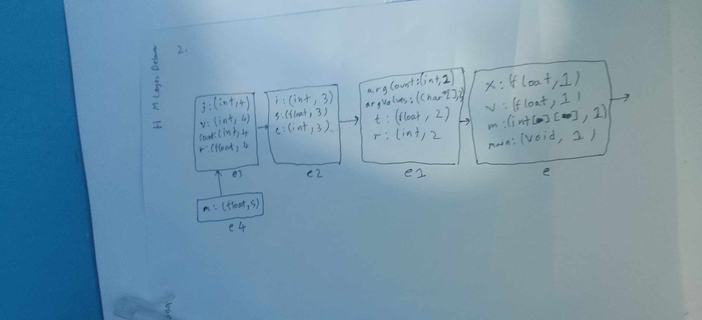 2.
j:(int,4)
v:(int,4)
count:(int,4
r:(float,4
e3
n:(float,5)
e4
i:(int,3)
s:(float,3)
c:(int,3)
e2
argCount:(int,2)
argValues:(char*[],2)
t:(float,2)
r:(int,2
e1
x:(float,1)
v:(float,1)
m:(int[][],1)
main:(void,1)
e